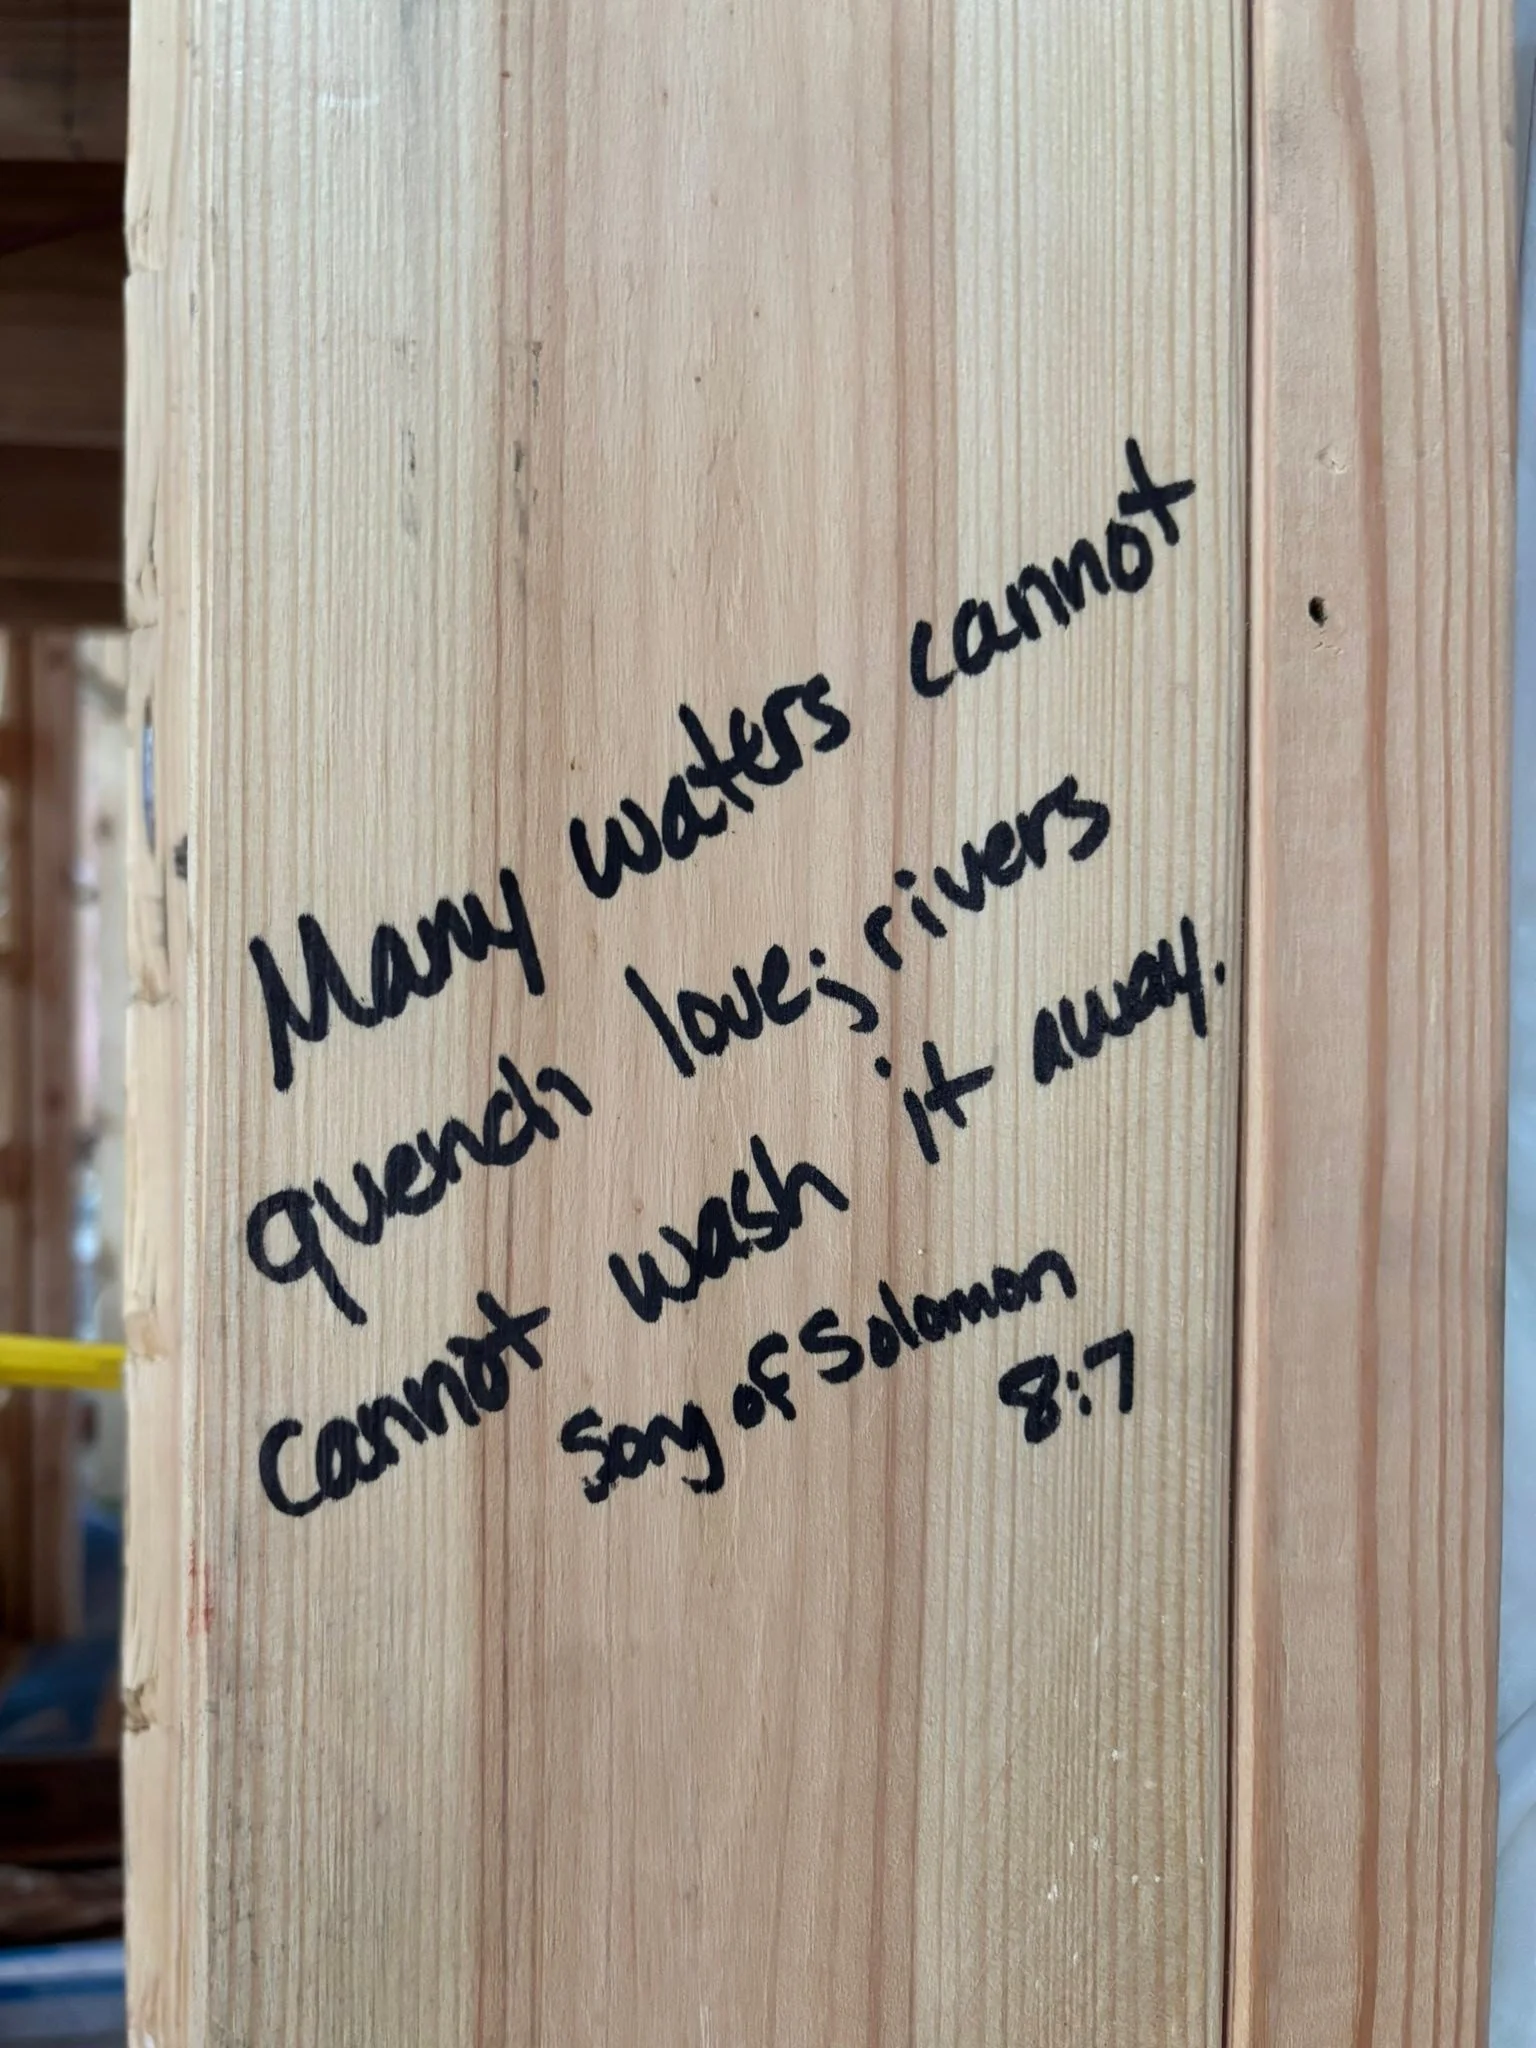 Many waters cannot
quench love; rivers
cannot wash it away.
Song of Solomon
8:7